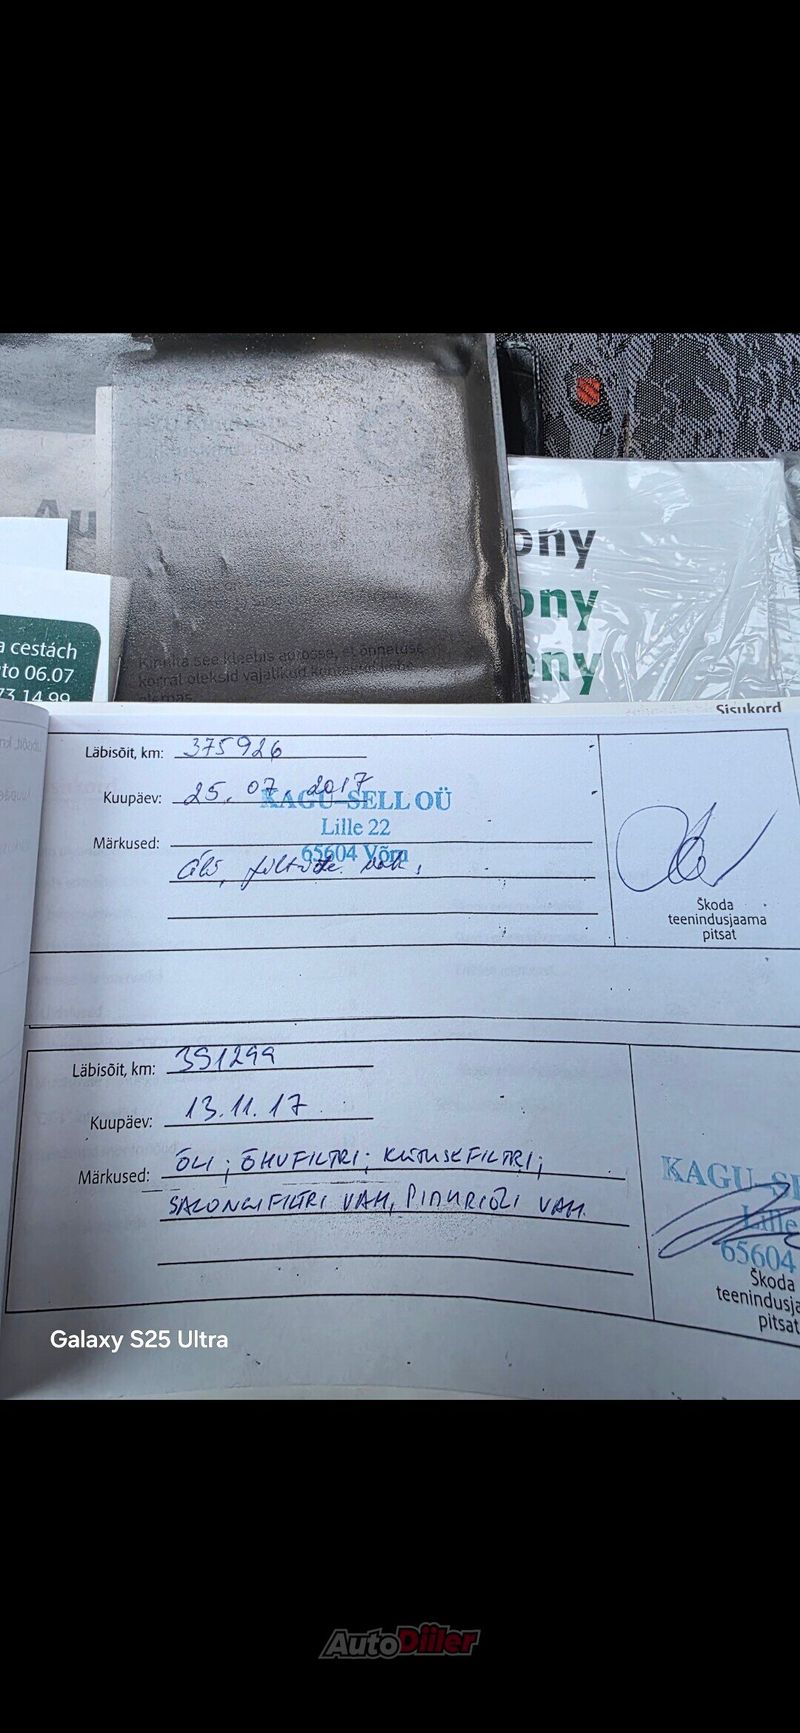 Au
ony
ony
ony
a cestách
to 06.07
73 14 99
Kinnita see kleebis autosse, et õnnetuse
korral oleksid vajalikud kontaktid kohe
olemas
Sisukord
Läbisõit, km: 375926
Kuupäev: 25. 07. 2017
KAGU-SELL OÜ
Lille 22
Märkused:
65604 Võru
õli, filtrite vah,
Škoda
teenindusjaama
pitsat
Läbisõit, km: 391299
Kuupäev: 13.11.17
Märkused: ÕLI; ÕHUFILTRI; KÜTUSEFILTRI;
SALONGIFILTRI VAH, PIDURIÕLI VAH.
KAGU-SE
Lille
65604
Škoda
teenindusja
pitsat
Galaxy S25 Ultra
AutoDiiler